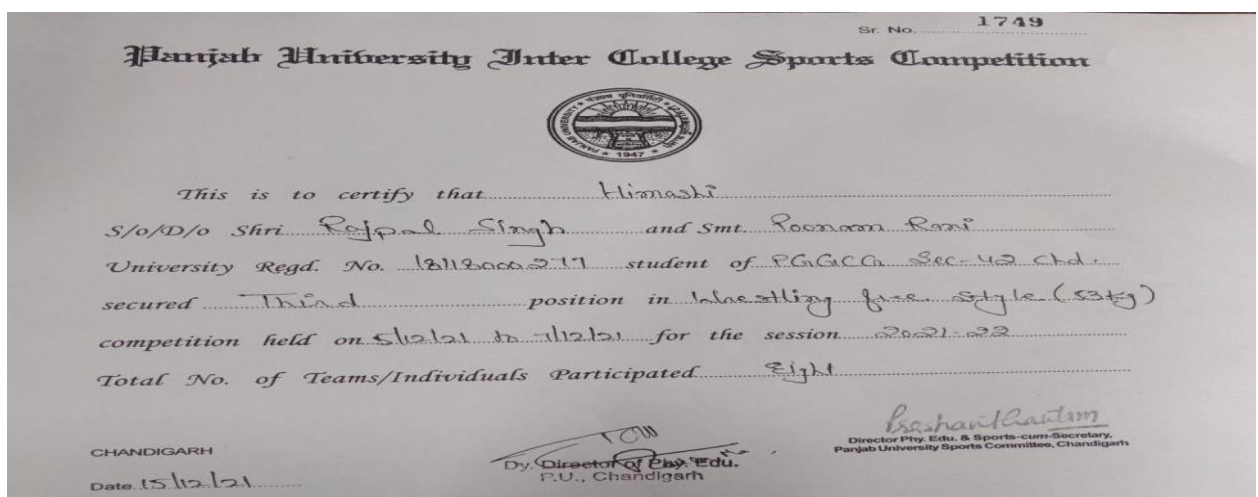 Sr. No. 1749
Panjab University Inter College Sports Competition
PANJAB UNIVERSITY
1947
This is to certify that Himashi
S/o/D/o Shri Rajpal Singh and Smt. Poonam Rani
University Regd. No. 18118000277 student of PGGCG Sec-42 Chd.
secured Third position in Wrestling free style (53kg)
competition held on 5/12/21 to 7/12/21 for the session 2021-22
Total No. of Teams/Individuals Participated Eight
Prashant Gautam
CHANDIGARH
Dy. Director of Phy. Edu.
P.U., Chandigarh
Director Phy. Edu. & Sports-cum-Secretary,
Panjab University Sports Committee, Chandigarh
Date 15/12/21